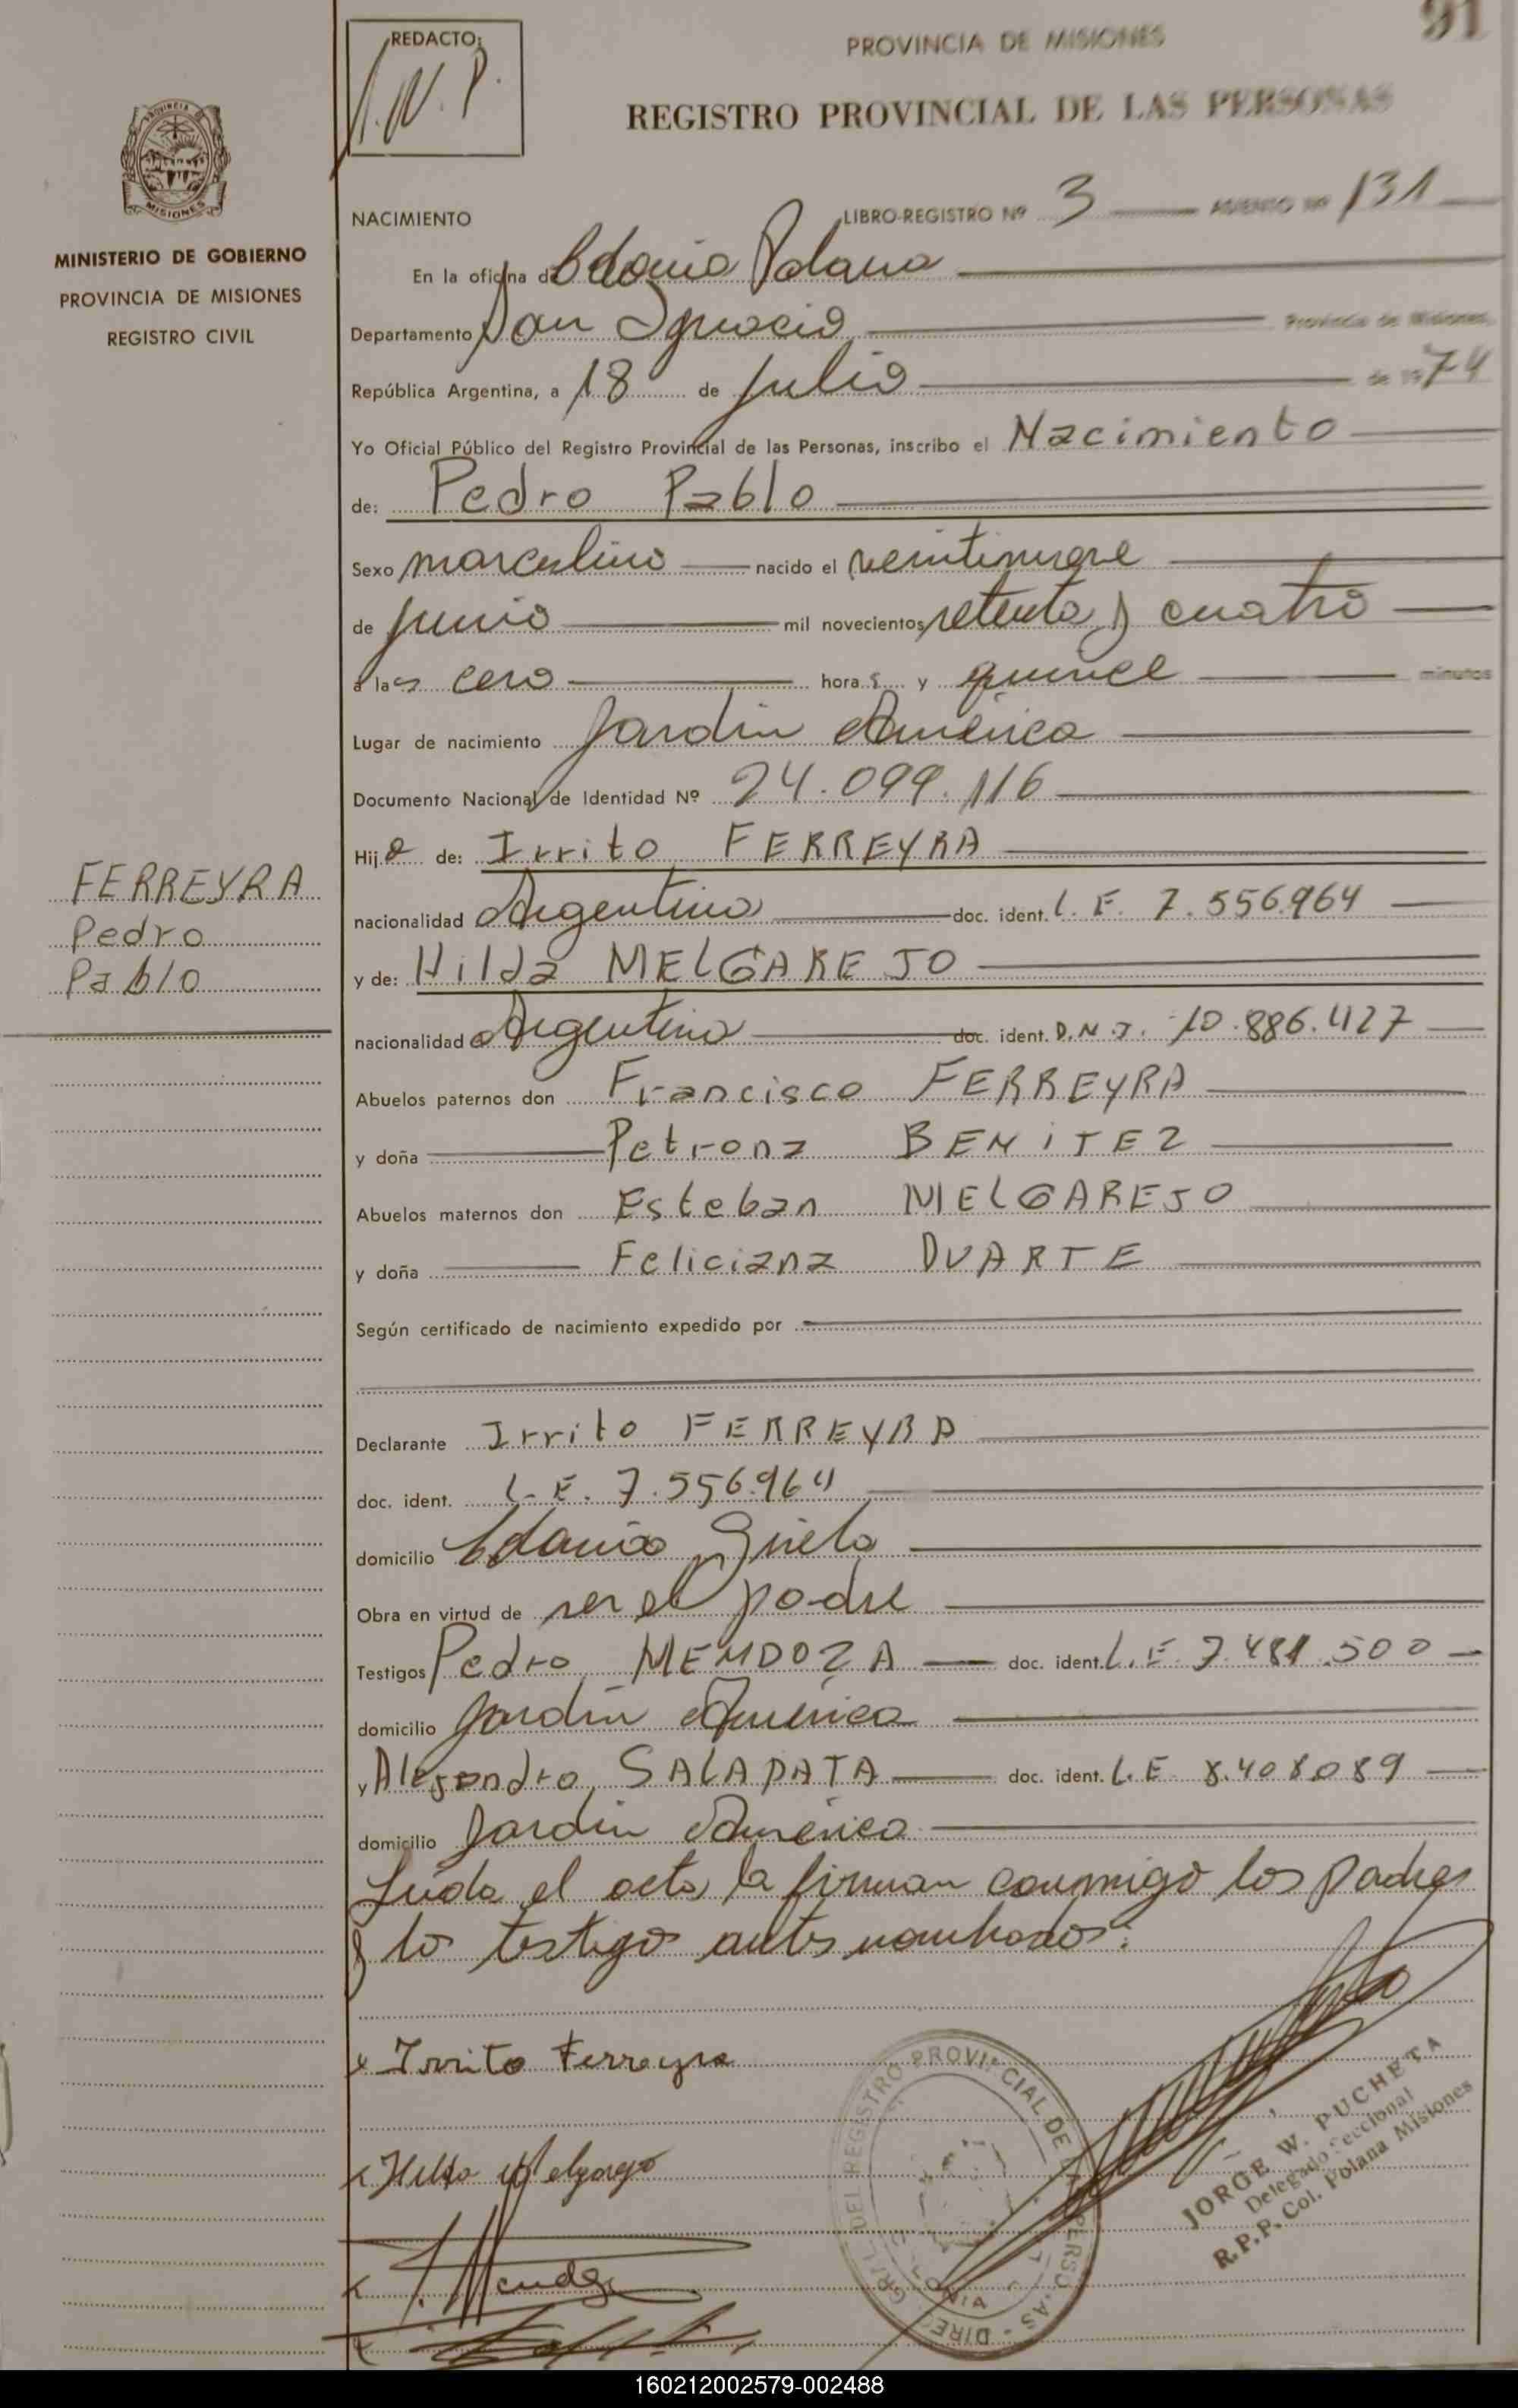 91
REDACTO:
PROVINCIA DE MISIONES
REGISTRO PROVINCIAL DE LAS PERSONAS
PROVINCIA
MISIONES
MINISTERIO DE GOBIERNO
PROVINCIA DE MISIONES
REGISTRO CIVIL
NACIMIENTO LIBRO-REGISTRO Nº 3 ASIENTO Nº 131
En la oficina de Colonia Polana
Departamento San Ignacio Provincia de Misiones,
República Argentina, a 18 de Julio de 1974
Yo Oficial Público del Registro Provincial de las Personas, inscribo el Nacimiento
de: Pedro Pablo
Sexo masculino nacido el veintinueve
de junio mil novecientos setenta y cuatro
a las cero horas y quince minutos
Lugar de nacimiento Jardin America
Documento Nacional de Identidad Nº 24.099.116
Hijo de: Irrito FERREYRA
FERREYRA
Pedro
Pablo
nacionalidad Argentino doc. ident. L.E. 7.556.964
y de: Hilda MELGAREJO
nacionalidad Argentina doc. ident. D.N.I. 10.886.427
Abuelos paternos don Francisco FERREYRA
y doña Petrona BENITEZ
Abuelos maternos don Esteban MELGAREJO
y doña Feliciana DUARTE
Según certificado de nacimiento expedido por
Declarante Irrito FERREYRA
doc. ident. L.E. 7.556.964
domicilio Colonia Gisela
Obra en virtud de ser el padre
Testigos Pedro MENDOZA doc. ident. L.E. 7.481.500
domicilio Jardin America
y Alejandro SALAPATA doc. ident. L.E 8.408089
domicilio Jardin America
Leida el acta la firman conmigo los padres
y los testigos antes nombrados:
x Irrito Ferreyra
x Hilda Melgarejo
JORGE W. PUCHETA
Delegado Seccional
R.P.P. Col. Polana Misiones
160212002579-002488